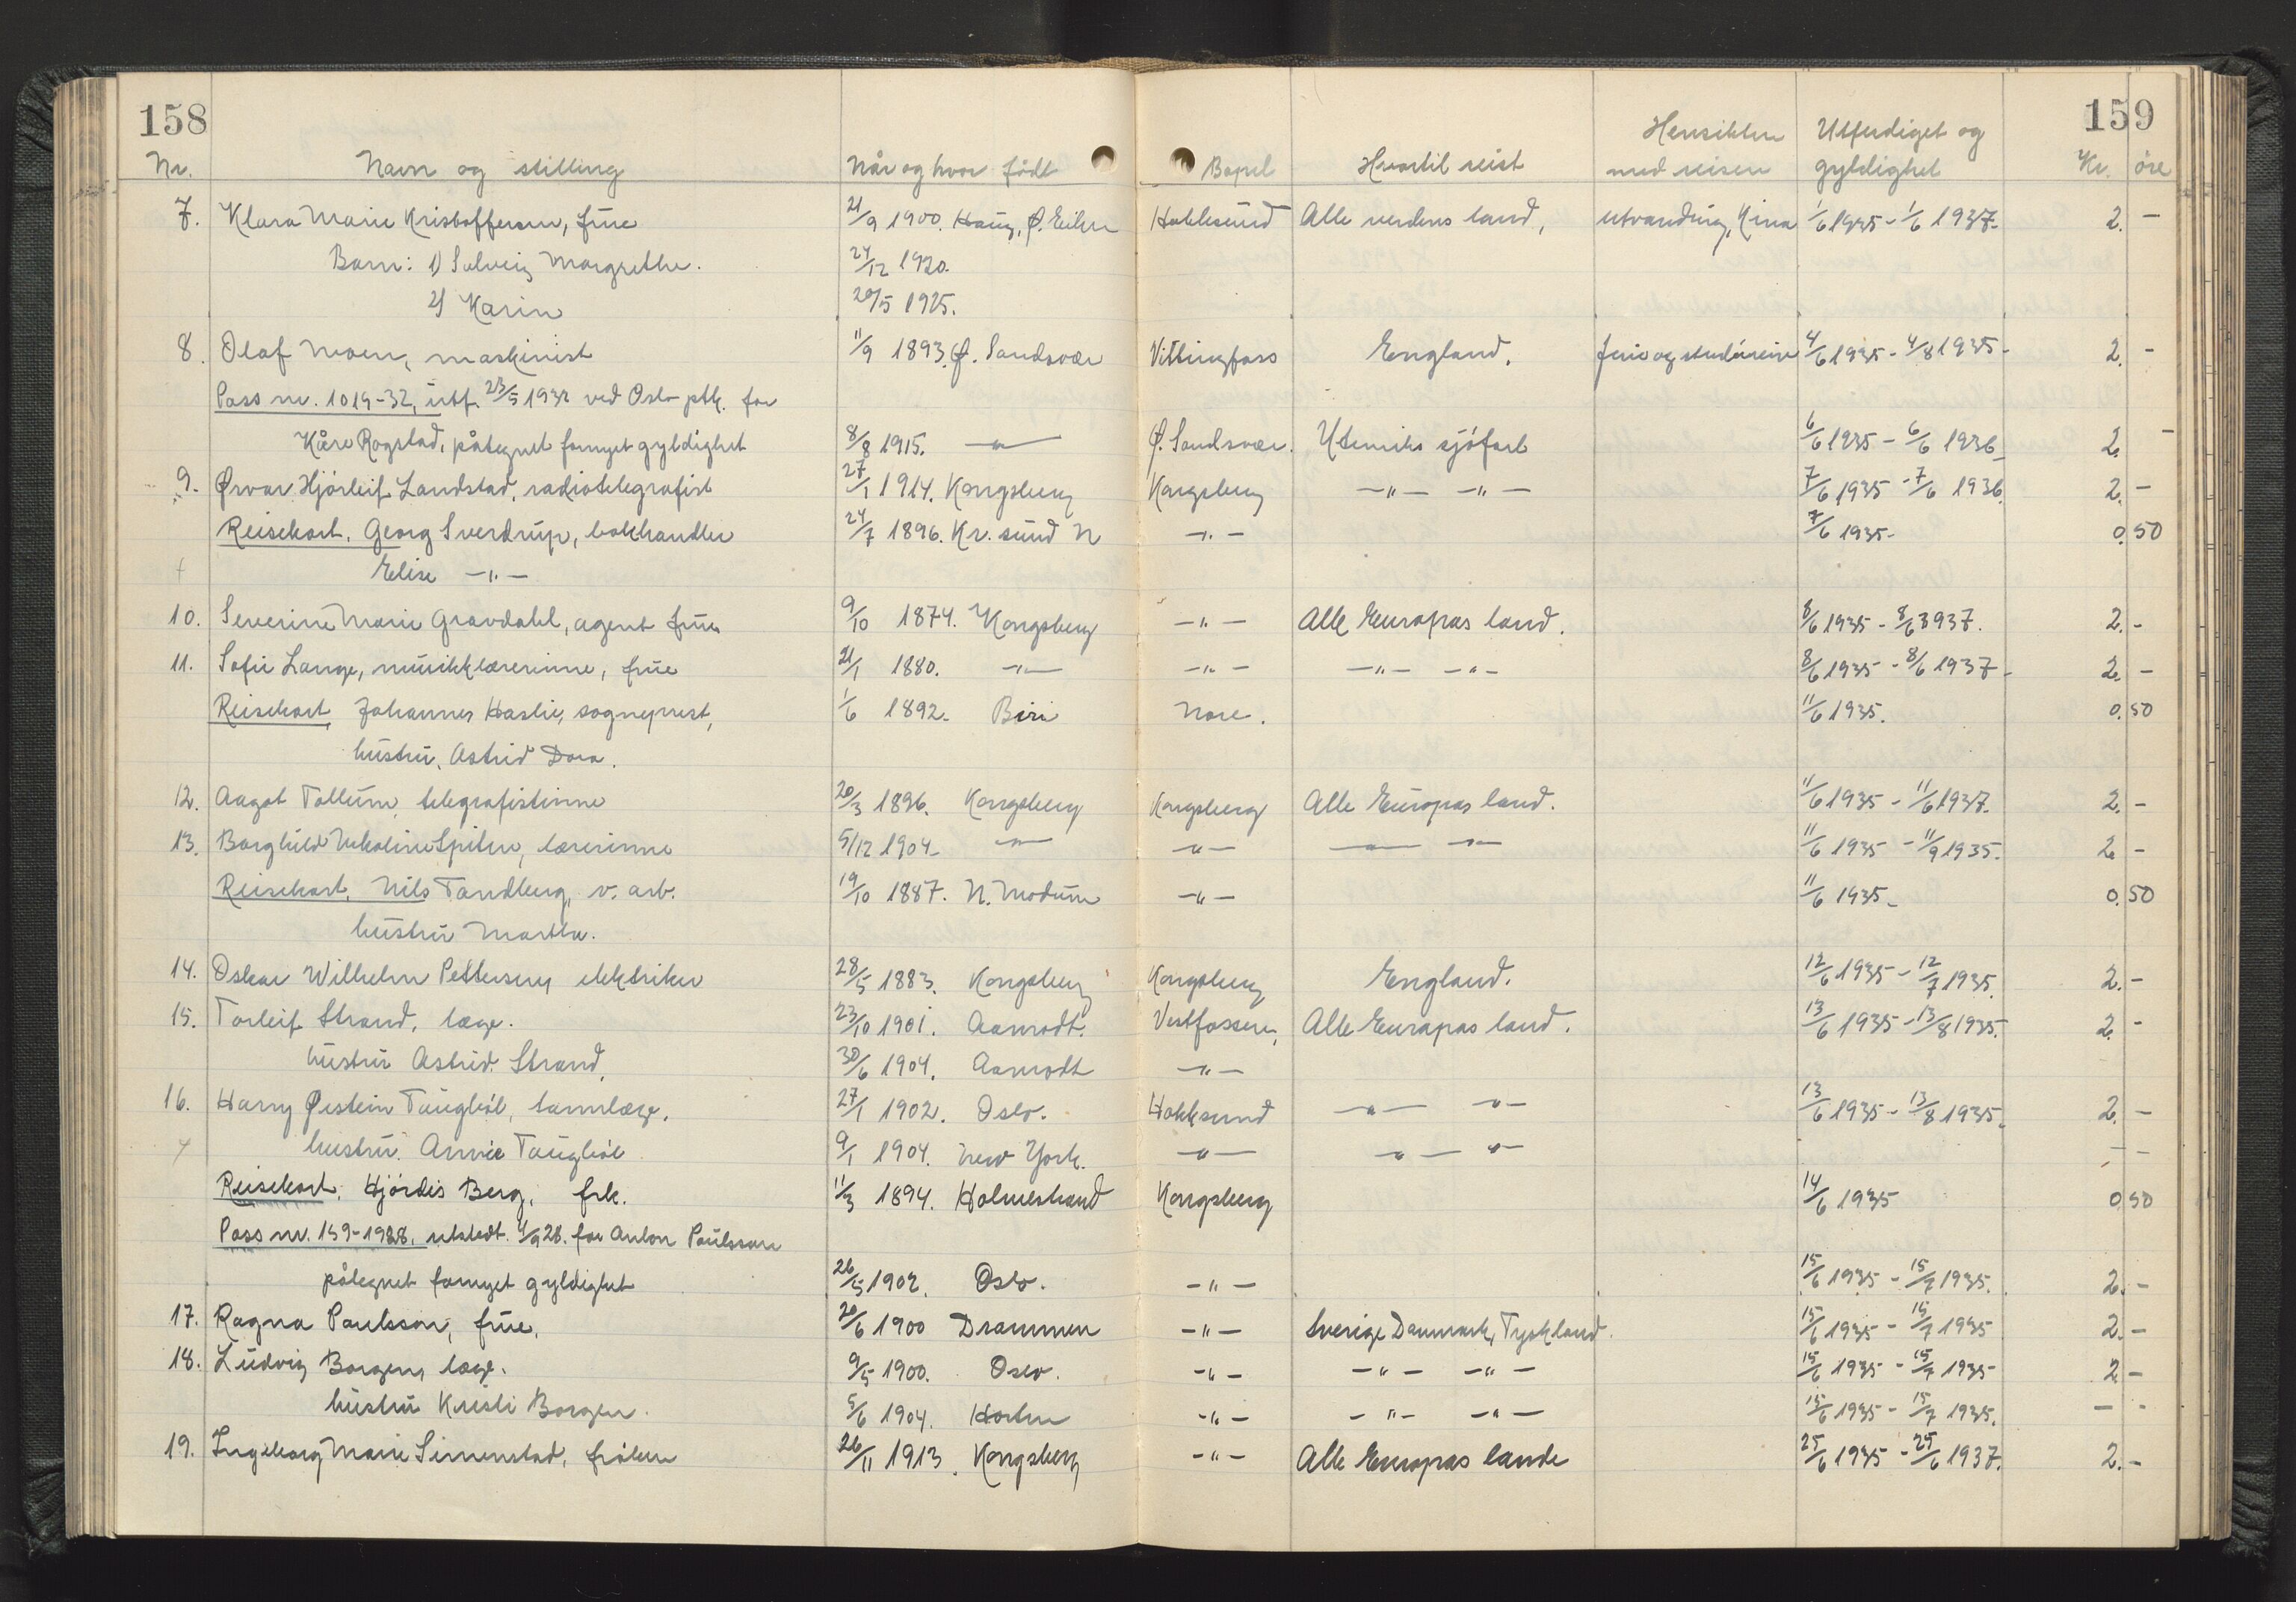 158
159
Nr. Navn og stilling Når og hvor født Bopel Hvortil reist Hensikten med reisen Utferdiget og gyldighet Kr. öre
7. Klara Marie Kristoffersen, frue 21/9 1900. Haug, Ø. Eiker Hokksund Alle verdens land, utvandring, Kina 1/6 1935 - 1/6 1937. 2. -
Barn: 1) Solveig Margrethe. 24/12 1920.
2) Karin 20/5 1925.
8. Olaf Moen, maskinist 11/9 1893. Ø. Sandsvær Vittingfoss England. ferie og studiereise 4/6 1935 - 4/8 1935 - 2. -
Pass nr. 1019-32, utf. 23/5 1932 ved Oslo ptk. for
Kåre Rogstad, påtegnet fornyet gyldighet 8/8 1915. -"- Ø. Sandsvær. Utenriks sjöfart 6/6 1935 - 6/6 1936 2. -
9. Ørvar Hjörleif Landstad, radiotelegrafist 27/1 1914. Kongsberg Kongsberg -"- -"- 7/6 1935 - 7/6 1936. 2. -
Reisekort. Georg Sverdrup, bokhandler 24/7 1896. Kr. sund N -"- 7/6 1935 - 0. 50
Elise -"-
10. Severine Marie Gravdahl, agent frue 9/10 1874. Kongsberg -"- Alle Europas land. 8/6 1935 - 8/6 3937. 2. -
11. Sofie Lange, musikklærerinne, frue 21/1 1880. -"- -"- -"- -"- 8/6 1935 - 8/6 1937 - 2. -
Reisekort, Johannes Haslie, sogneprest, 1/6 1892. Biri Nore. 11/6 1935. 0. 50
hustru, Astrid Dora.
12. Aagot Tollum, telegrafistinne 20/3 1896. Kongsberg Kongsberg Alle Europas land. 11/6 1935 - 11/6 1937. 2. -
13. Borghild Spiten, lærerinne 5/12 1904 - -"- -"- -"- -"- 11/6 1935 - 11/9 1935. 2. -
Reisekort. Nils Tandberg, v. arb. 19/10 1887. N. Modum -"- 11/6 1935 - 0. 50
hustru Martha.
14. Oskar Wilhelm Pettersen, elektriker 28/5 1883. Kongsberg Kongsberg England. 12/6 1935 - 12/7 1935. 2. -
15. Torleif Strand, læge. 23/10 1901. Aamodt. Vestfossen, Alle Europas land. 13/6 1935 - 13/8 1935. 2. -
hustru Astrid Strand, 30/6 1904. Aamodt -"-
16. Harry Øistein Taugbøl, tannlæge. 27/1 1902. Oslo. Hokksund -"- -"- 13/6 1935 - 13/8 1935. 2. -
hustru: Annie Taugbøl 9/1 1904. New York. -"- -"- -"- - -
Reisekort. Hjördis Berg, frk. 11/3 1894. Holmestrand Kongsberg 14/6 1935 0. 50
Pass nr. 159-1928, utstedt. 4/9 28. for Anton Paulsson
påtegnet fornyet gyldighet 26/5 1902. Oslo. -"- 15/6 1935 - 15/7 1935. 2. -
17. Ragna Paulsson, frue, 20/6 1900 Drammen -"- Sverige Danmark, Tyskland. 15/6 1935 - 15/7 1935 2. -
18. Ludvig Borgen, læge. 9/5 1900. Oslo. -"- -"- -"- 15/6 1935 - 15/7 1935 2 -
hustru Kristi Borgen. 5/6 1904. Horten -"- -"- -"- 15/6 1935 - 15/7 1935. - -
19. Ingeborg Marie Simenstad, fröken 26/11 1913. Kongsberg -"- Alle Europas lande 25/6 1935 - 25/6 1937. 2. -